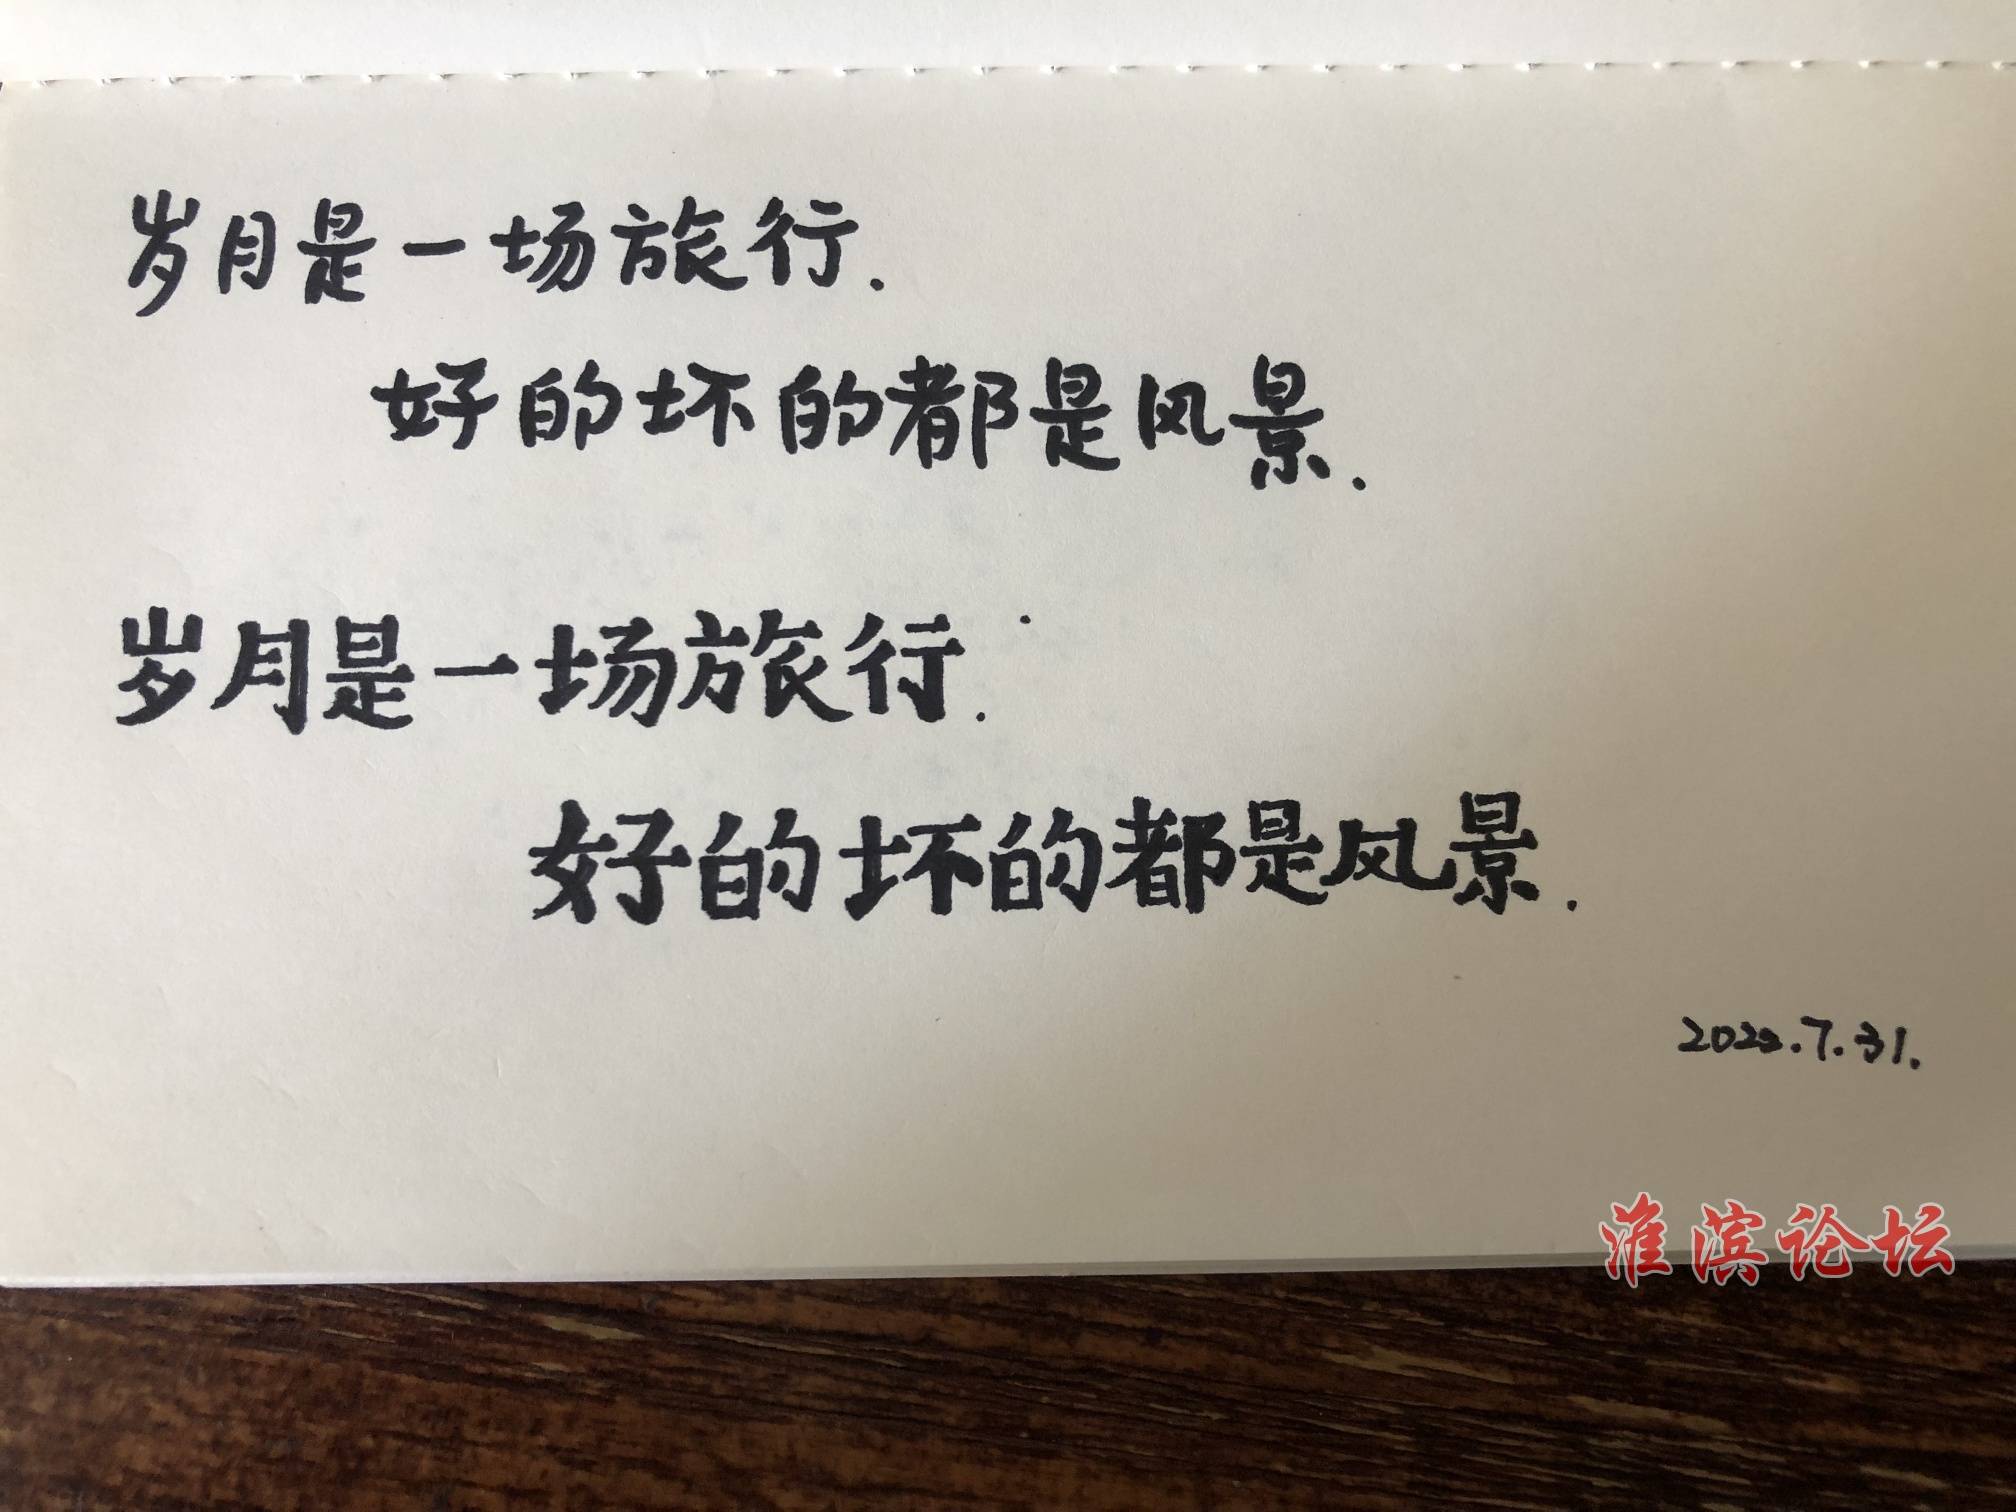 岁月是一场旅行.
好的坏的都是风景.
岁月是一场旅行.
好的坏的都是风景.
2023.7.31.
淮滨论坛